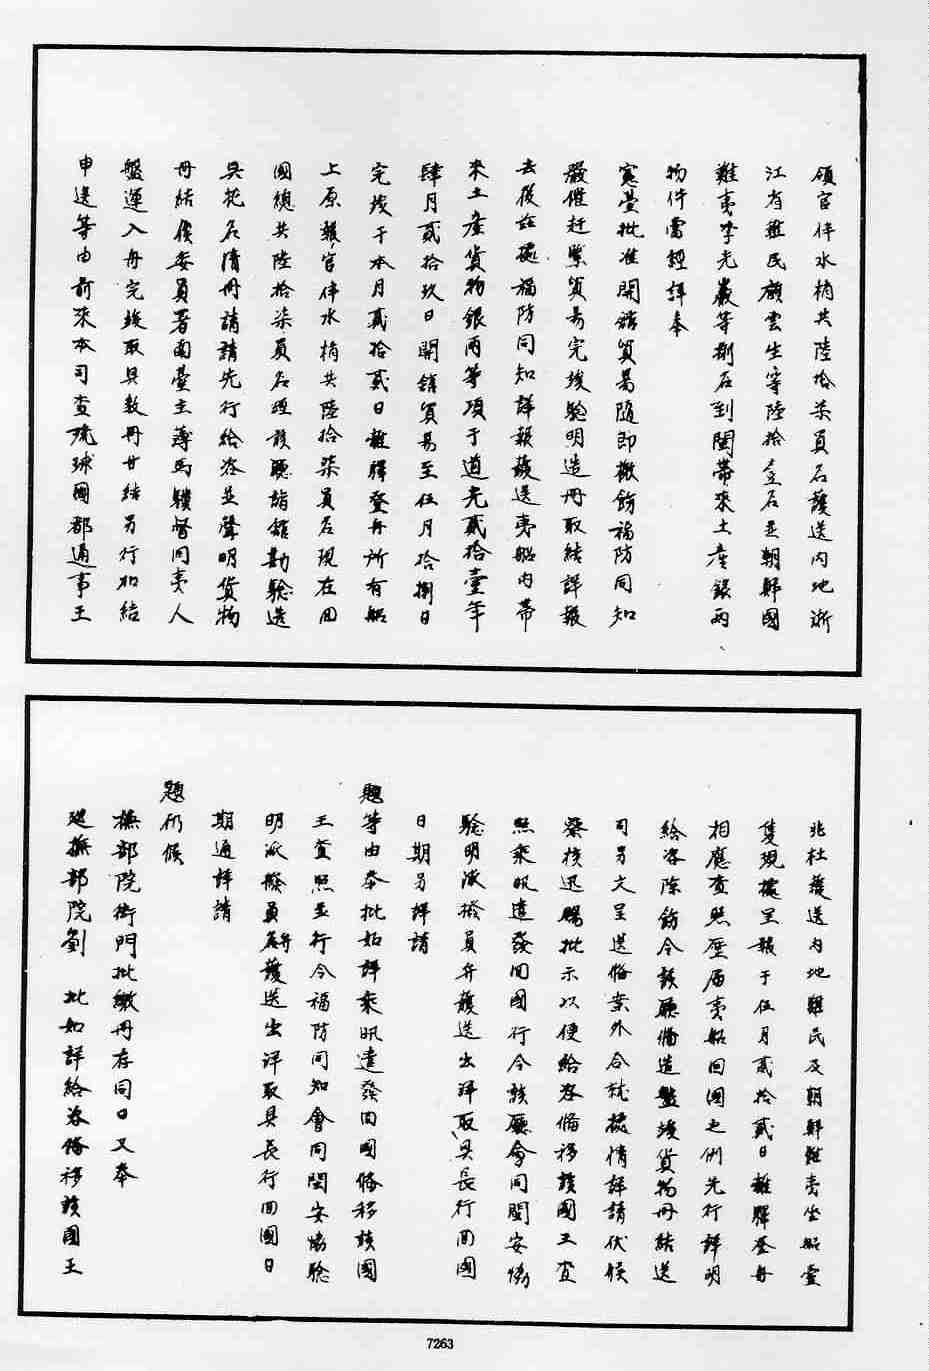 領官伴水梢共陸拾柒員名護送內地浙
江省難民顧雲生等陸拾壹名並朝鮮國
難夷李光嚴等捌名到閩帶來土產銀兩
物件當經詳奉
憲臺批准開館貿易隨即檄飭福防同知
嚴催赶緊貿易完竣驗明造冊取結詳報
去後茲據福防同知詳報護送夷船內帶
來土產貨物銀兩等項于道光貳拾壹年
肆月貳拾玖日開館貿易至伍月拾捌日
完竣于本月貳拾貳日離驛登舟所有船
上原報官伴水梢共陸拾柒員名現在回
國總共陸拾柒員名理該廳詣館勘驗造
具花名清冊請請先行給咨並聲明貨物
冊結俟委員署南臺主薄馬驥督同夷人
盤運入舟完竣取具数冊甘結另行加結
申送等由前來本司查琉球國都通事王
兆杜護送內地難民及朝鮮難夷坐船壹
隻現據呈報于伍月貳拾貳日離驛登舟
相應查照歷屆夷船回國之例先行詳明
給咨除飭令該廳備造盤竣貨物冊結送
司另文呈送備案外合就據情詳請伏候
察核迅賜批示以便給咨備移該國王查
照乘汛遣發回國行令該廳會同閩安協
驗明派撥員弁護送出洋取具長行回國
日期另詳請
題等由奉批如詳乘汛遣發回國俻移該國
王查照並行令福防同知會同閩安協驗
明派撥員弁護送出洋取具長行回國日
期通詳請
題仍候
撫部院衙門批繳冊存同日又奉
廵撫部院劉 批如詳給咨俻移該國王
7263